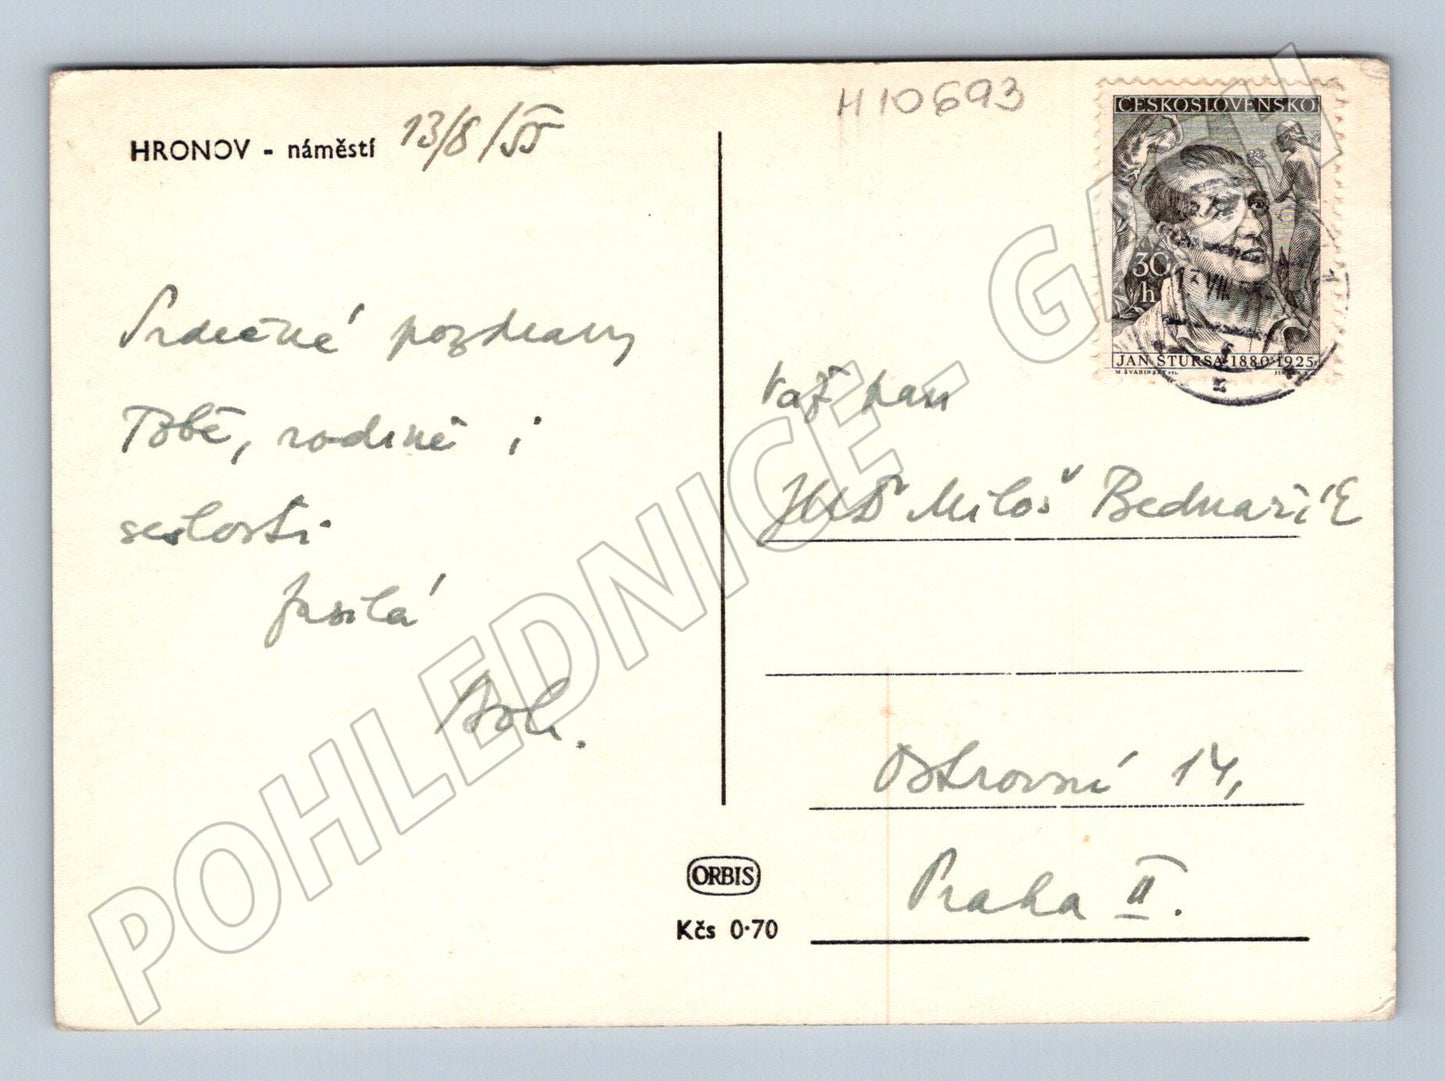 HRONOV - náměstí 13/8/55
H10693
ČESKOSLOVENSKO
30
h
JAN ŠTURSA 1880-1925
M. ŠVABINSKÝ
Srdečné pozdravy
Tobě, rodině i
sešlosti
posílá
Váž. pan
JUDr Miloš Bednařík
Ostrovní 14,
Praha II.
ORBIS
Kčs 0·70
POHLEDNICE - G